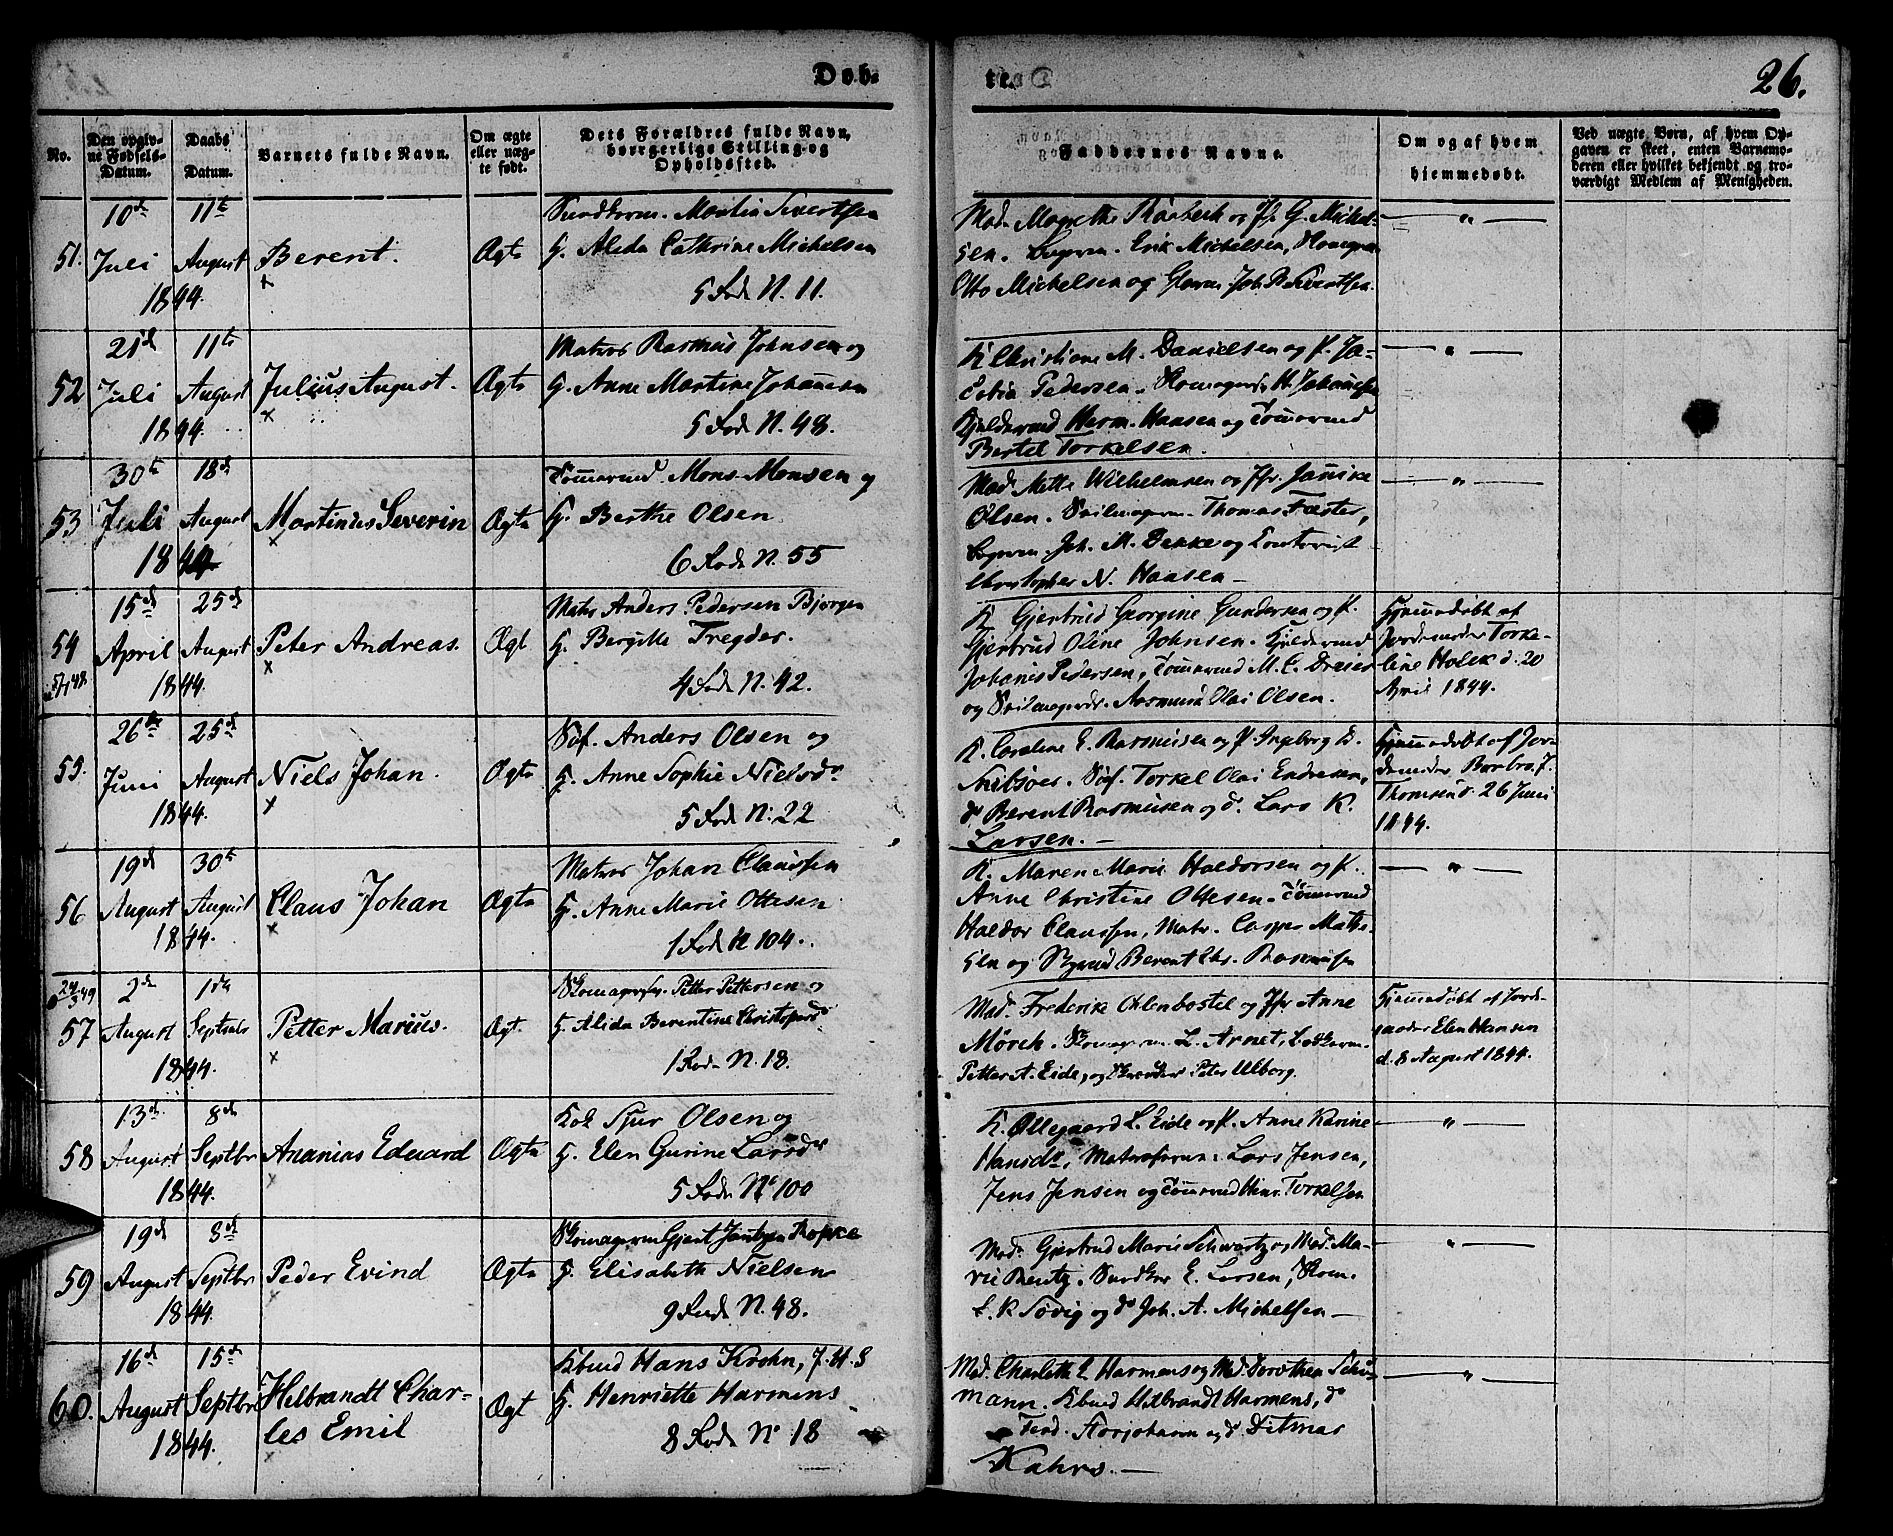 Døb-
te.
26.
No.
Den opgiv-
ne Fødsels-
Datum.
Daabs
Datum.
Barnets fulde Navn.
Om ægte
eller uæg-
te født.
Dets Forældres fulde Navn,
borgerlige Stilling og
Opholdssted.
Faddernes Navne.
Om og af hvem
hjemmedøbt.
Ved uægte Børn, af hvem Op-
gaven er skeet, enten Barnemo-
deren eller hvilket bekjendt og tro-
værdigt Medlem af Menigheden.
51. 10de Juli 1844. 11te August Berent. Ægte
Martin Sivertsen
H. Alida Cathrine Michelsen
5 Rode N. 11.
Mad. Magrethe Raabeck og Jfr G. Michel-
sen. Erik Michelsen,
Otto Michelsen og Joh. R. Sivertsen.
52 21de Juli 1844. 11te August Julius August. Ægte
Matros Rasmus Johnsen og
H. Anne Martine Johannesen
5 Rode N. 48.
K. Christiane M. Danielsen og P. Ja-
cobia Pedersen. H. Johannesen
Herm. Hansen og Tømmermd
Bertel Torkelsen.
53 30te Juli 1844 18de August Martinus Severin Ægte
Tømmermd Mons Monsen og
H. Berthe Olsen
6 Rode N. 55
Mad. Mette Wilhelmsen og Jfr. Jannike
Olsen. Seilmagerm. Thomas Fæster,
Joh. M. Dekke og Contorist
Christopher N. Hansen
54 15de April 1844. 25de August Peter Andreas. Ægt
Matr Anders Pedersen Bjergen
H. Bergitte Tregder.
4 Rode N. 42.
K. Gjertrud Georgine Gundersen og P.
Gjertrud Oline Johnsen.
Johanis Pedersen, Tømmermd M. C. Dreier
og Seilmagerdr. Rasmus Olai Olsen.
Hjemmedøbt af
Jordemoder Torke-
line Holck d. 20
April 1844.
55. 26de Juni 1844. 25de August Niels Johan. Ægte
Søf. Anders Olsen og
H. Anne Sophie Nielsdr
5 Rode N. 22
K. Caroline E. Rasmusen og P. Ingeborg E.
Søf. Torkel Olai Endresen,
do Berent Rasmusen og do. Lars K.
Larsen.
Hjemmedøbt af Jor-
demoder Barbro J.
Thomsen d. 26 Juni
1844.
56 19de August 1844. 30te August Claus Johan Ægte
Matros Johan Claussen
H. Anne Marie Ottesen
1 Rode N 104.
K. Maren Marie Haldorsen og P.
Anne Christine Ottesen. Tømmermd
Haldor Claussen, Matr. Casper Mathi-
sen og Berent Chr. Rasmusen
57 2de August 1844. 1ste Septbr Petter Marius. Ægt.
Skomagersv. Petter Pettersen og
H. Alida Berentine Christophersdr
1 Rode N. 18.
Mad. Frederike Ohlenbostel og Jfr. Anne
Mørch. Skomagerm. L. Arnet,
Petter A. Eide, og Peter Ulborg.
Hjemmedøbt af Jorde-
moder Elen Hansen
d. 8 August 1844.
58 13de August 1844. 8de Septbr Ananias Eduard Ægte
Sjur Olsen og
H. Elen Gurine Larsdr
5 Rode No 100
K. Øllegaard L. Eide og P. Anne Karine
Hansdr, Lars Jensen,
Jens Jensen og Tømmermd Hinr. Torkelsen
59 19de August 1844. 8de Septbr Peder Evind Ægte
Skomagerm Gjert Jantzen Kopke
H. Elisabeth Nielsen
9 Rode N. 48.
Mad. Gjertrud Marie Schwartz og Mad. Ma-
rie Bentz. E. Larsen, Skom.
L. K. Søvig og do Joh. A. Michelsen
60. 16de August 1844. 15de Septbr Helbrandt Char-
les Emil Ægt
Kbmd Hans Krohn, F. H. S
H. Henriette Harmens
8 Rode No 18
Mad. Charlotte L Harmens og Mad. Dorothea Schu-
mann. Kbmd Hilbrandt Harmens, do
Ferd. Storjohann og do Ditmar
Kahrs.